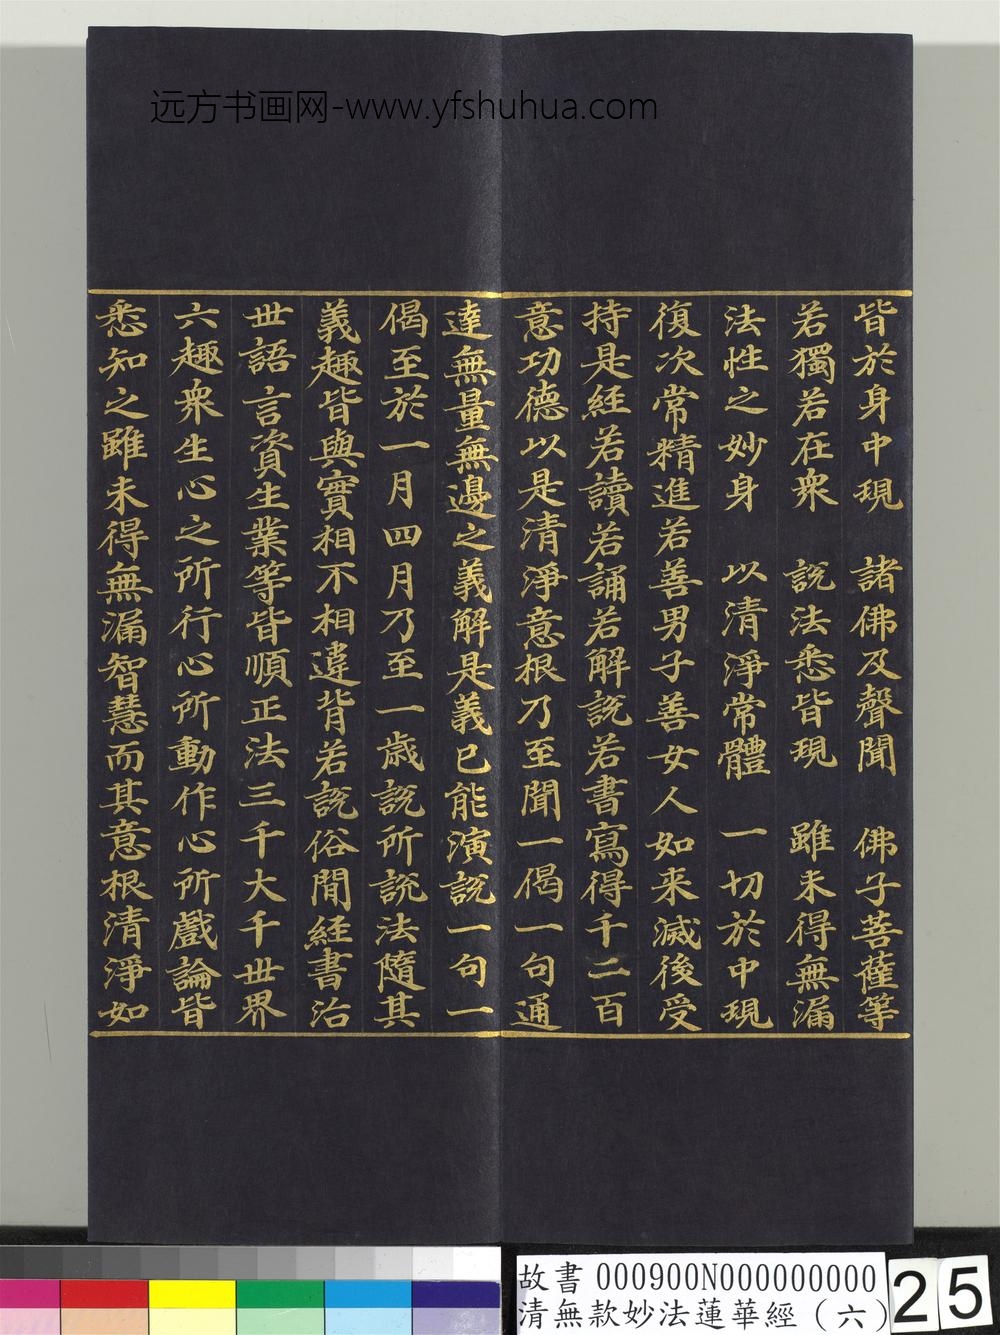 远方书画网-www.yfshuhua.com
皆於身中現 諸佛及聲聞 佛子菩薩等
若獨若在衆 説法悉皆現 雖未得無漏
法性之妙身 以清淨常體 一切於中現
復次常精進若善男子善女人如来滅後受
持是經若讀若誦若解説若書寫得千二百
意功德以是清淨意根乃至聞一偈一句通
達無量無邊之義解是義已能演説一句一
偈至於一月四月乃至一歲説所説法隨其
義趣皆與實相不相違背若説俗間經書治
世語言資生業等皆順正法三千大千世界
六趣衆生心之所行心所動作心所戲論皆
悉知之雖未得無漏智慧而其意根清淨如
故書 000900N000000000 25
清無款妙法蓮華經（六）